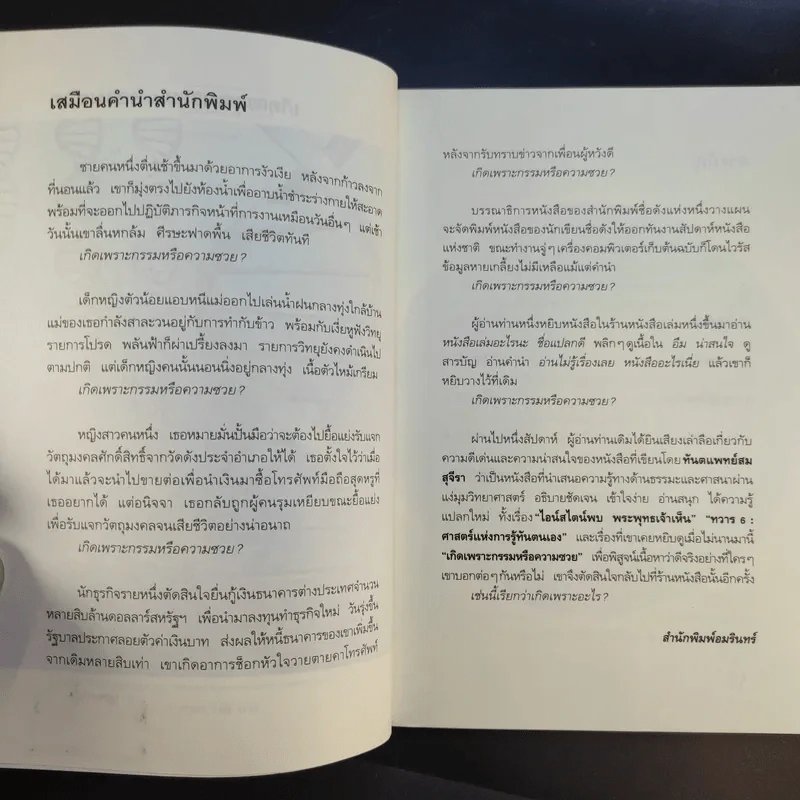 เสมือนคำนำสำนักพิมพ์
ชายคนหนึ่งตื่นเช้าขึ้นมาด้วยอาการงัวเงีย หลังจากก้าวลงจาก
ที่นอนแล้ว เขาก็มุ่งตรงไปยังห้องน้ำเพื่ออาบน้ำชำระร่างกายให้สะอาด
พร้อมที่จะออกไปปฏิบัติภารกิจหน้าที่การงานเหมือนวันอื่นๆ แต่เช้า
วันนั้นเขาลื่นหกล้ม ศีรษะฟาดพื้น เสียชีวิตทันที
เกิดเพราะกรรมหรือความซวย?
เด็กหญิงตัวน้อยแอบหนีแม่ออกไปเล่นน้ำฝนกลางทุ่งใกล้บ้าน
แม่ของเธอกำลังสาละวนอยู่กับการทำกับข้าว พร้อมกับเงี่ยหูฟังวิทยุ
รายการโปรด พลันฟ้าก็ผ่าเปรี้ยงลงมา รายการวิทยุยังคงดำเนินไป
ตามปกติ แต่เด็กหญิงคนนั้นนอนนิ่งอยู่กลางทุ่ง เนื้อตัวไหม้เกรียม
เกิดเพราะกรรมหรือความซวย?
หญิงสาวคนหนึ่ง เธอหมายมั่นปั้นมือว่าจะต้องไปยื้อแย่งรับแจก
วัตถุมงคลศักดิ์สิทธิ์จากวัดดังประจำอำเภอให้ได้ เธอตั้งใจไว้ว่าเมื่อ
ได้มาแล้วจะนำไปขายต่อเพื่อนำเงินมาซื้อโทรศัพท์มือถือสุดหรูที่
เธออยากได้ แต่อนิจจา เธอกลับถูกผู้คนรุมเหยียบขณะยื้อแย่ง
เพื่อรับแจกวัตถุมงคลจนเสียชีวิตอย่างน่าอนาถ
เกิดเพราะกรรมหรือความซวย?
นักธุรกิจรายหนึ่งตัดสินใจยื่นกู้เงินธนาคารต่างประเทศจำนวน
หลายสิบล้านดอลลาร์สหรัฐฯ เพื่อนำมาลงทุนทำธุรกิจใหม่ วันรุ่งขึ้น
รัฐบาลประกาศลอยตัวค่าเงินบาท ส่งผลให้หนี้ธนาคารของเขาเพิ่มขึ้น
จากเดิมหลายสิบเท่า เขาเกิดอาการช็อกหัวใจวายตายคาโทรศัพท์
หลังจากรับทราบข่าวจากเพื่อนผู้หวังดี
เกิดเพราะกรรมหรือความซวย?
บรรณาธิการหนังสือของสำนักพิมพ์ชื่อดังแห่งหนึ่งวางแผน
จะจัดพิมพ์หนังสือของนักเขียนชื่อดังให้ออกทันงานสัปดาห์หนังสือ
แห่งชาติ ขณะทำงานจู่ๆ เครื่องคอมพิวเตอร์เก็บต้นฉบับก็โดนไวรัส
ข้อมูลหายเกลี้ยงไม่มีเหลือแม้แต่คำนำ
เกิดเพราะกรรมหรือความซวย?
ผู้อ่านท่านหนึ่งหยิบหนังสือในร้านหนังสือเล่มหนึ่งขึ้นมาอ่าน
หนังสือเล่มอะไรนะ ชื่อแปลกดี พลิกๆ ดูเนื้อใน อืม น่าสนใจ ดู
สารบัญ อ่านคำนำ อ่านไม่รู้เรื่องเลย หนังสืออะไรเนี่ย แล้วเขาก็
หยิบวางไว้ที่เดิม
เกิดเพราะกรรมหรือความซวย?
ผ่านไปหนึ่งสัปดาห์ ผู้อ่านท่านเดิมได้ยินเสียงเล่าลือเกี่ยวกับ
ความดีเด่นและความน่าสนใจของหนังสือที่เขียนโดย ทันตแพทย์สม
สุจีรา ว่าเป็นหนังสือที่นำเสนอความรู้ทางด้านธรรมะและศาสนาผ่าน
แง่มุมวิทยาศาสตร์ อธิบายชัดเจน เข้าใจง่าย อ่านสนุก ได้ความรู้
แปลกใหม่ ทั้งเรื่อง "ไอน์สไตน์พบ พระพุทธเจ้าเห็น" "ทวาร 6 :
ศาสตร์แห่งการรู้ทันตนเอง" และเรื่องที่เขาเคยหยิบดูเมื่อไม่นานมานี้
"เกิดเพราะกรรมหรือความซวย" เพื่อพิสูจน์เนื้อหาว่าดีจริงอย่างที่ใครๆ
เขาบอกต่อๆ กันหรือไม่ เขาจึงตัดสินใจกลับไปที่ร้านหนังสือนั้นอีกครั้ง
เช่นนี้เรียกว่าเกิดเพราะอะไร?
สำนักพิมพ์อมรินทร์